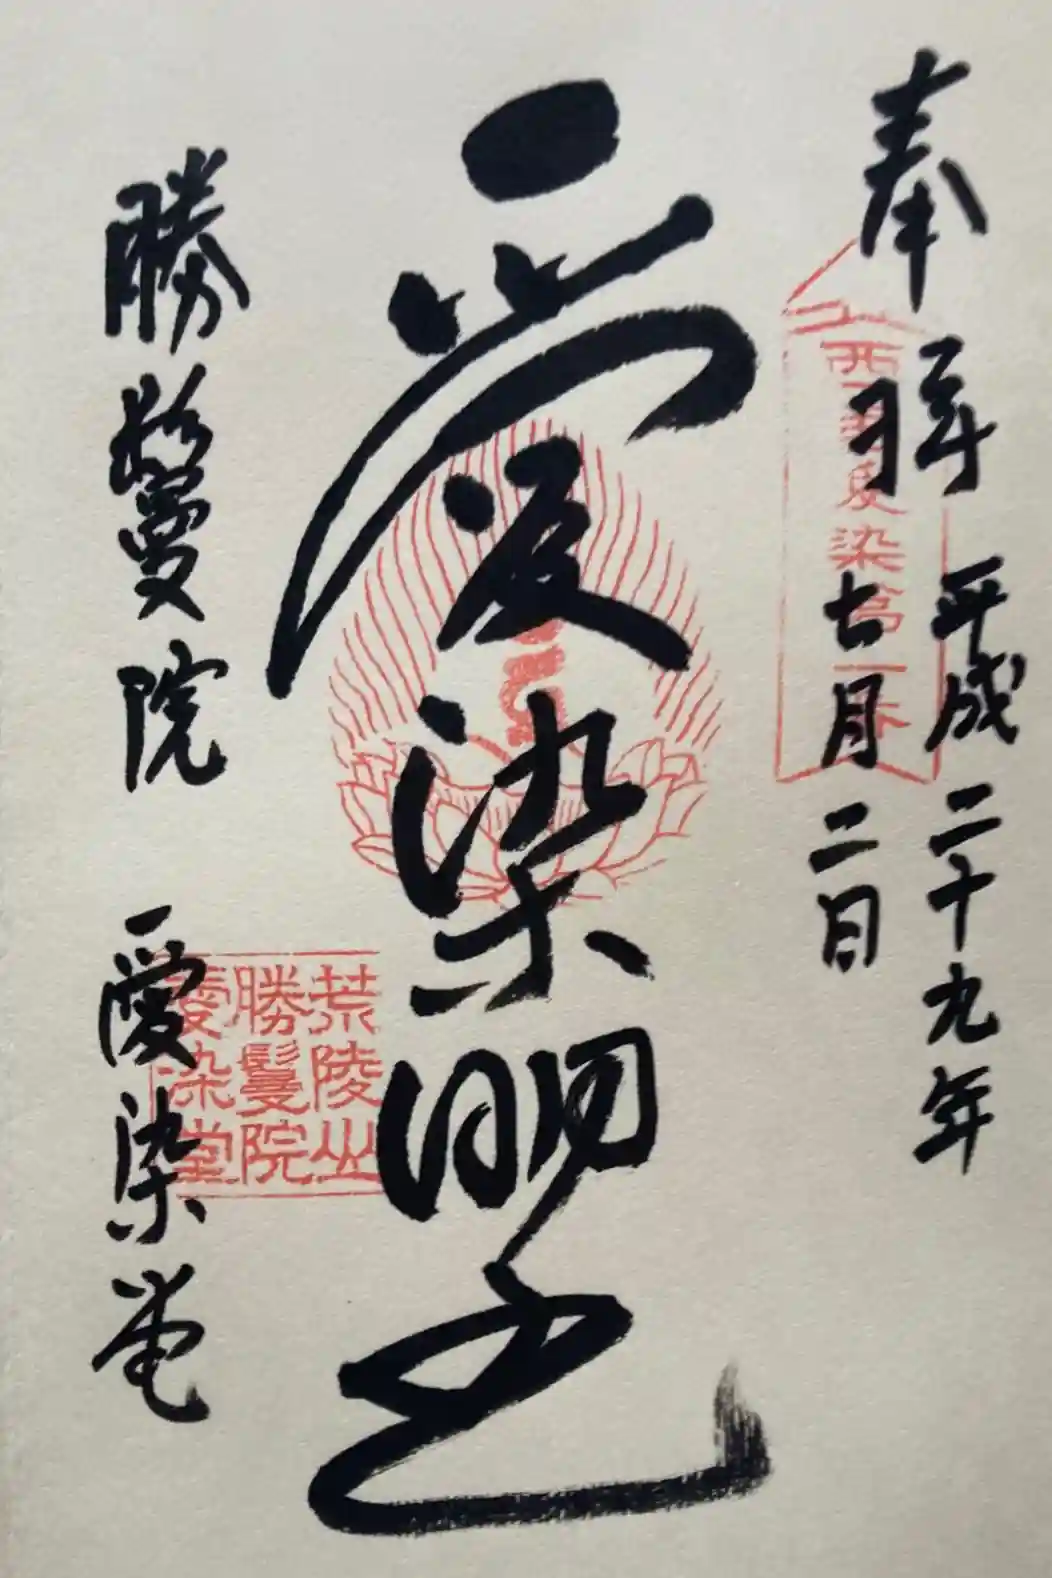 奉拝
平成二十九年
七月二日
西国愛染第一番
愛染明王
荒陵山
勝鬘院
愛染堂
勝鬘院 愛染堂